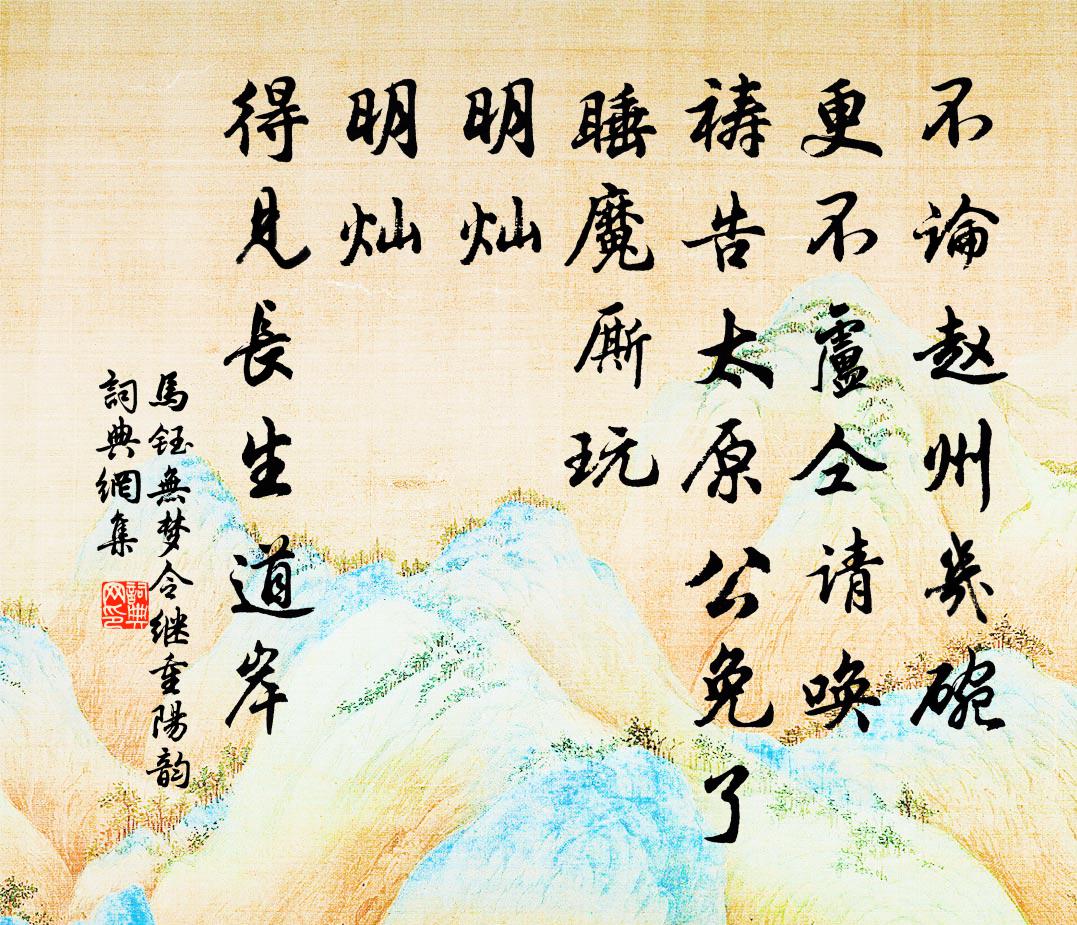 不論赵州幾碗
更不盧仝请唤
祷告太原公免了
睡魔厮玩
明灿
明灿
得見長生道岸
馬鈺無梦令继重陽韵
詞典網集
詞典